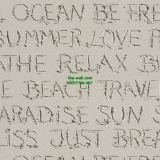 L OCEAN BE FRE
SUMMER LOVE B
THE RELAX B
E BEACH TRAVE
PARADISE SUN
LISS JUST BRE
OCEAN BE F